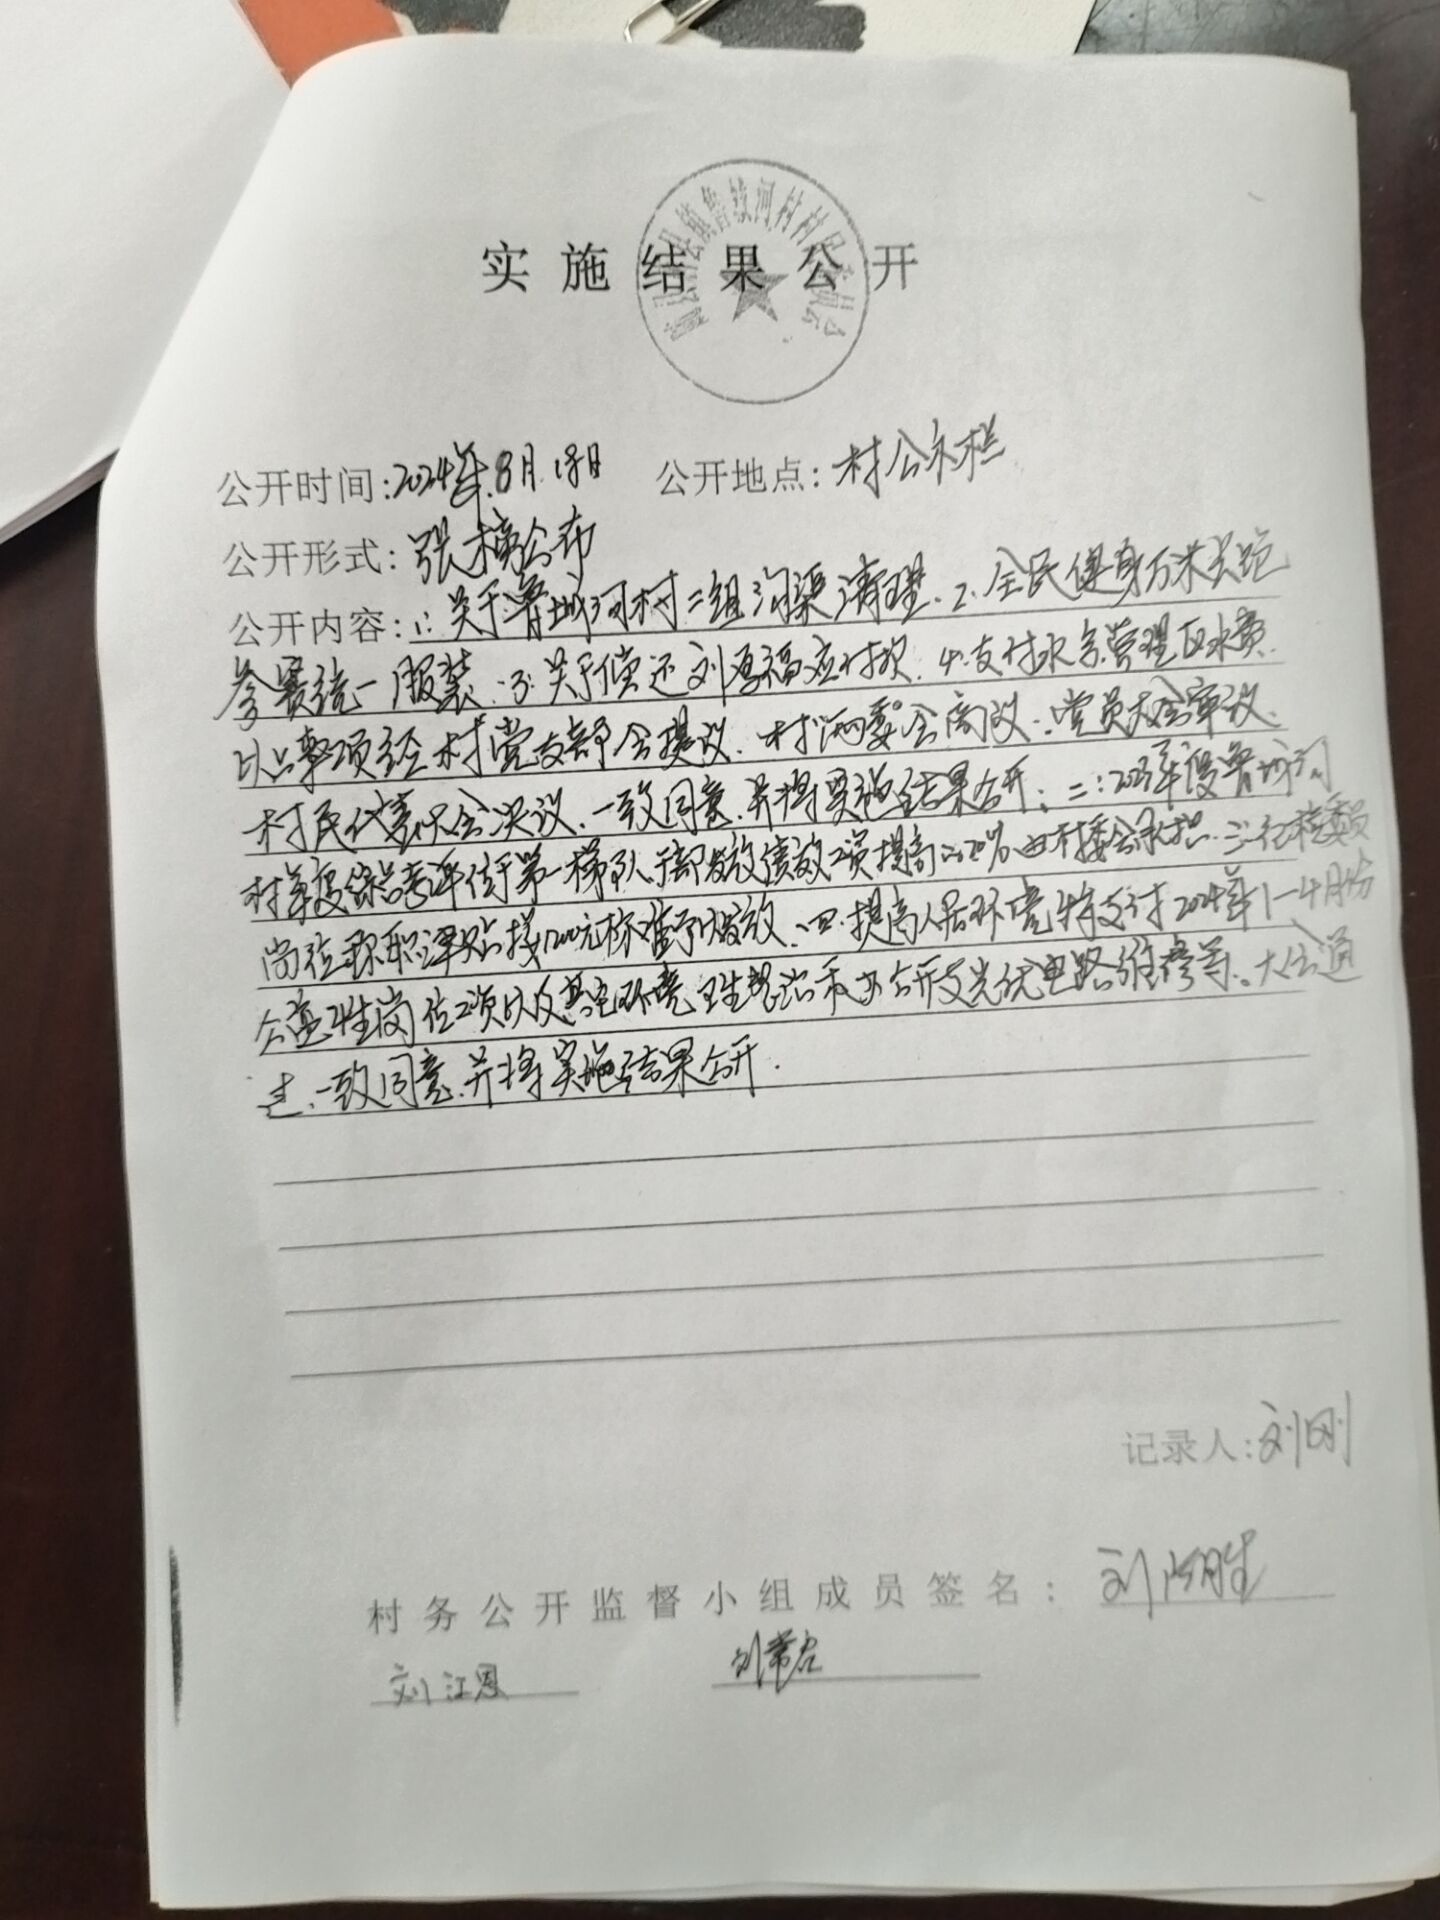 实施结果公开
公开时间:2024年8月18日 公开地点:村公示栏
公开形式:张榜公布
公开内容:1:关于鲁城河村二组沟渠清理.2.全民健身万米长跑
参赛统一服装.3:关于偿还刘厚福应付款.4.支付水务管理区水费.
以上事项经村党支部会提议.村两委会商议.党员大会审议.
村民代表会决议.一致同意.并将实施结果公开;二:2023年度鲁城河
村年度综合考评位于第一梯队干部发放绩效工资提高20%由村委会承担.三:纪检委员
岗位称职津贴按1200元标准予以发放.四.提高人居环境特支付2024年1-4月份
公益性岗位工资以及其它环境卫生整治和办公开支光伏电路维修等.大会通
过.一致同意.并将实施结果公开.
记录人:刘刚
村务公开监督小组成员签名:刘
刘江恩 刘常启